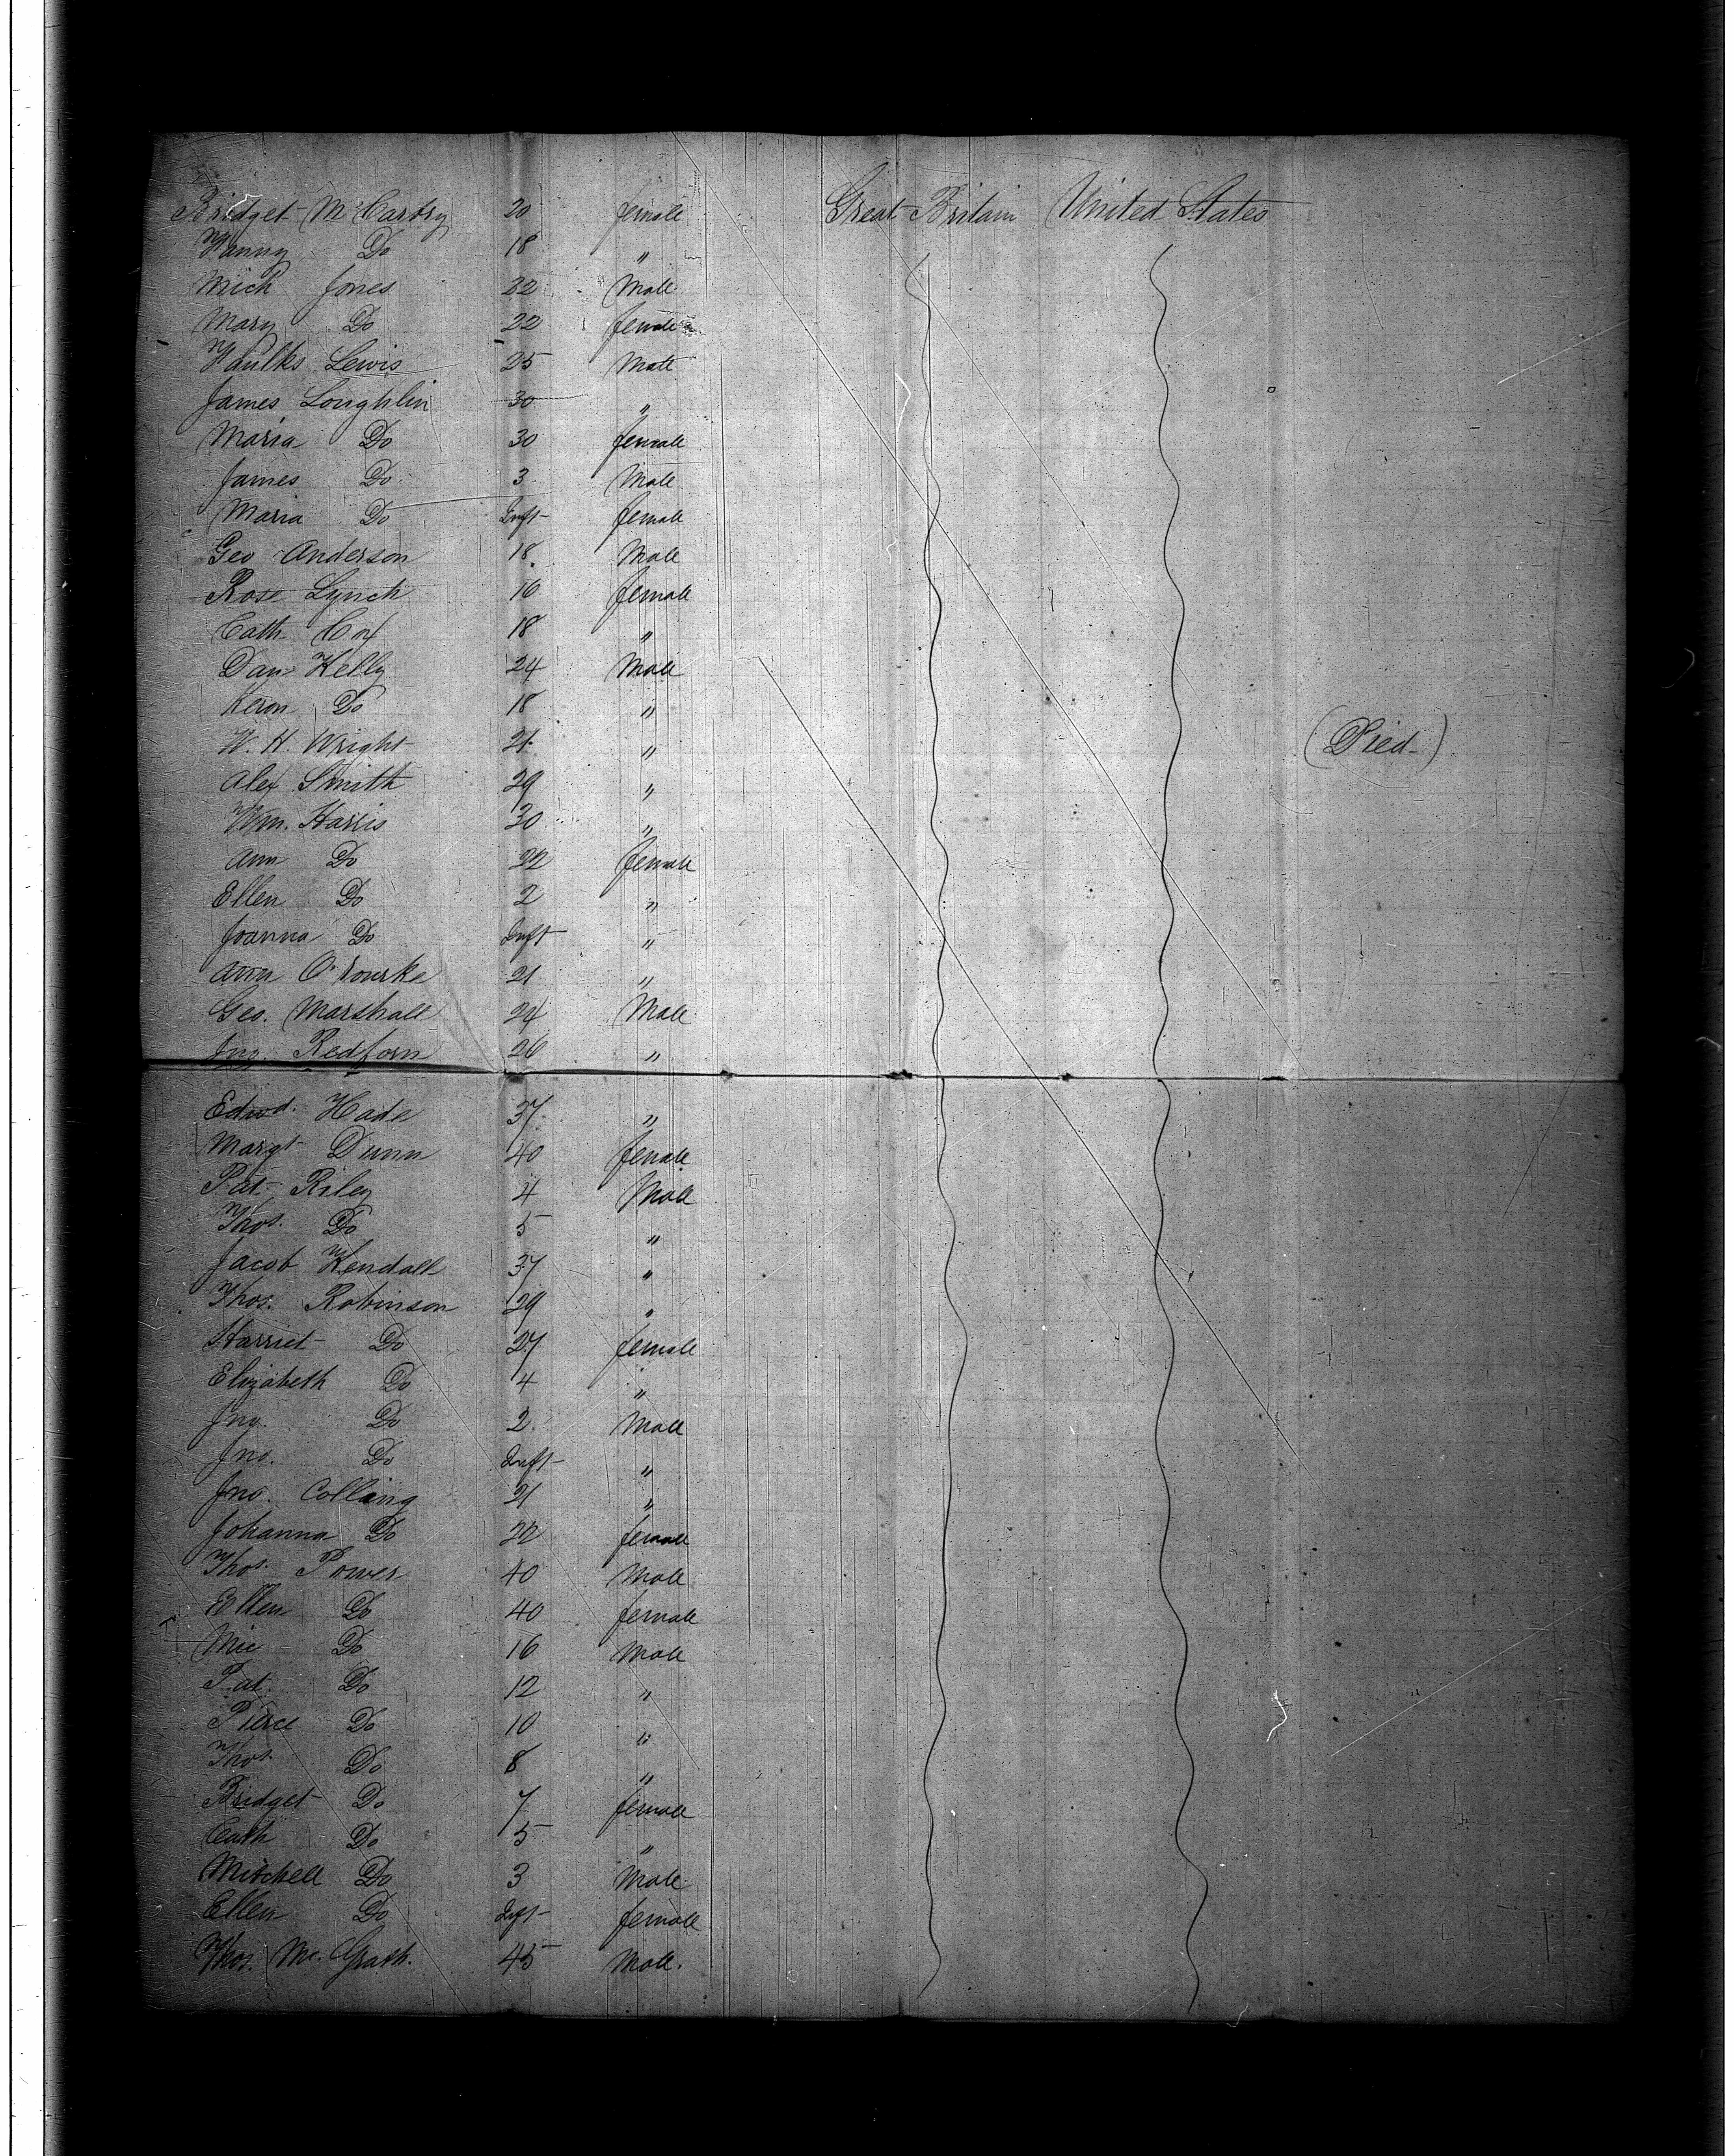 Bridget McCartry 20 female Great Britain United States
Fanny Do 18 "
Mich Jones 22 Male
Mary Do 22 female
Faulks Lewis 25 Male
James Loughlin 30 "
Maria Do 30 female
James Do 3 Male
Maria Do Inft female
Geo Anderson 18 Male
Rose Lynch 16 female
Cath Cox 18 "
Dan Kelly 24 Male
Keron Do 18 "
W. H. Wright 21 " (Died)
Alex Smith 29 "
Wm. Harris 30 "
Ann Do 22 female
Ellen Do 2 "
Joanna Do Inft "
Ann O'Rourke 21 "
Geo. Marshall 24 Male
Jno. Redforn 26 "
Edwd. Hade 37 "
Margt Dunn 40 female
Pat Riley 4 Male
Thos. Do 5 "
Jacob Kendall 37 "
Thos. Robinson 29 "
Harriet Do 27 female
Elizabeth Do 4 "
Jno. Do 2 Male
Jno. Do Inft "
Jno. Colling 21 "
Johanna Do 22 female
Thos. Power 40 Male
Ellen Do 40 female
Mic Do 16 Male
Pat Do 12 "
Pierce Do 10 "
Thos Do 8 "
Bridget Do 7 female
Cath Do 5 "
Mitchell Do 3 Male
Ellen Do Inft female
Thos. McGrath. 45 Male.